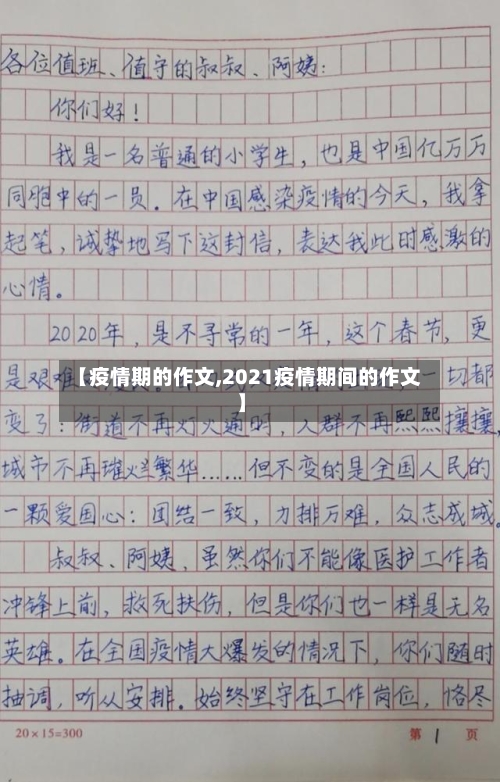 各位值班、值守的叔叔、阿姨:
你们好!
我是一名普通的小学生，也是中国亿万万
同胞中的一员。在中国感染疫情的今天，我拿
起笔，诚挚地写下这封信，表达我此时感激的
心情。
2020年，是不寻常的一年，这个春节，更
是艰难
【疫情期的作文,2021疫情期间的作文
】
一切都
变了:街道不再灯火通明，人群不再熙熙攘攘，
城市不再璀烂繁华……但不变的是全国人民的
一颗爱国心:团结一致，力排万难，众志成城。
叔叔、阿姨，虽然你们不能像医护工作者
冲锋上前，救死扶伤，但是你们也一样是无名
英雄。在全国疫情大爆发的情况下，你们随时
抽调，听从安排。始终坚守在工作岗位，恪尽
20×15=300
第 1 页